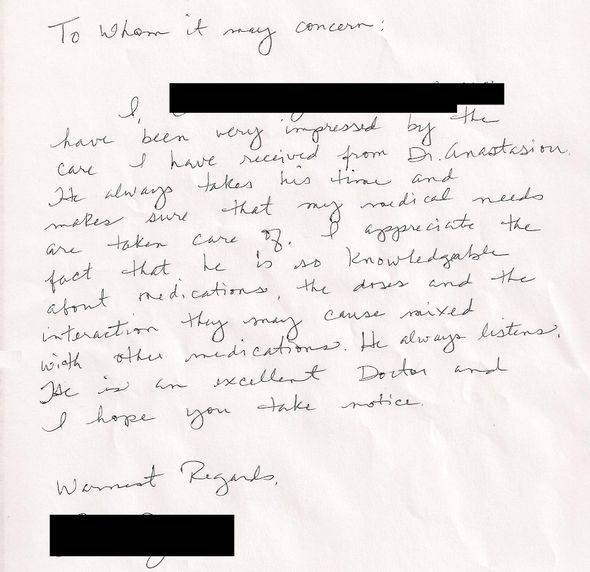 To Whom it may concern:
I,
have been very impressed by the
care I have received from Dr. Anastasiou.
He always takes his time and
makes sure that my medical needs
are taken care of. I appreciate the
fact that he is so knowledgable
about medications, the doses and the
interaction they may cause mixed
with other medications. He always listens.
He is an excellent Doctor and
I hope you take notice.
Warmest Regards,